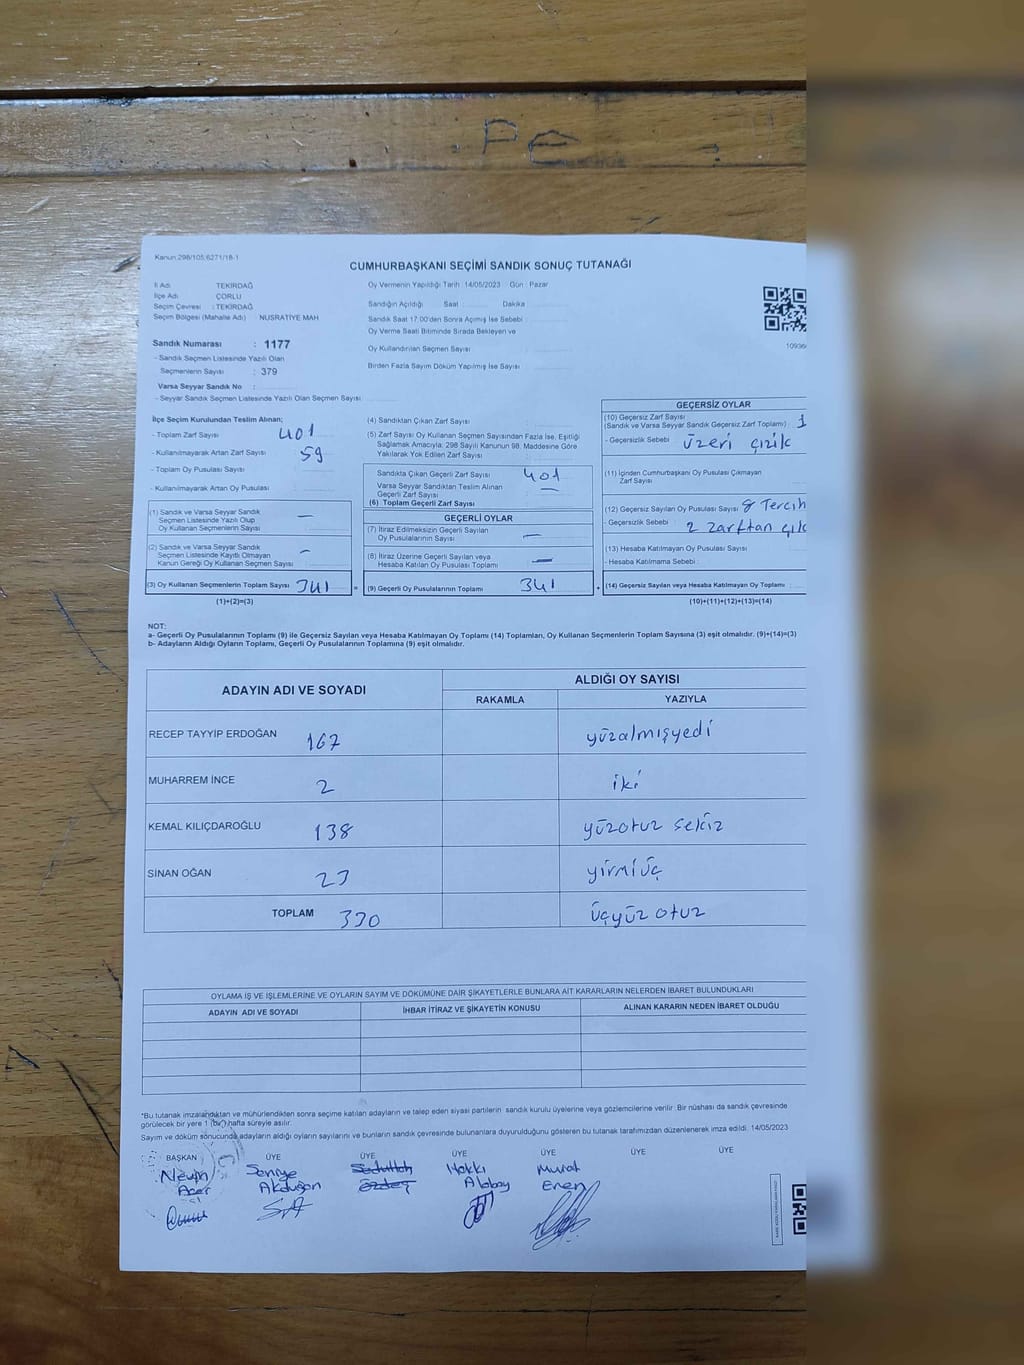 Pe
Kanun 298/105;6271/18-1
CUMHURBAŞKANI SEÇİMİ SANDIK SONUÇ TUTANAĞI
İl Adı TEKİRDAĞ
İlçe Adı ÇORLU
Seçim Çevresi : TEKİRDAĞ
Seçim Bölgesi (Mahalle Adı) NUSRATİYE MAH
Oy Vermenin Yapıldığı Tarih 14/05/2023 Gün : Pazar
Sandığın Açıldığı Saat : Dakika
Sandık Saat 17:00'den Sonra Açımış İse Sebebi :
Oy Verme Saati Bitiminde Sırada Bekleyen ve
Oy Kullandırılan Seçmen Sayısı
Birden Fazla Sayım Döküm Yapılmış İse Sayısı
10936
Sandık Numarası : 1177
- Sandık Seçmen Listesinde Yazılı Olan
Seçmenlerin Sayısı : 379
Varsa Seyyar Sandık No :
- Seyyar Sandık Seçmen Listesinde Yazılı Olan Seçmen Sayısı
İlçe Seçim Kurulundan Teslim Alınan;
- Toplam Zarf Sayısı 401
- Kullanılmayarak Artan Zarf Sayısı 59
- Toplam Oy Pusulası Sayısı
- Kullanılmayarak Artan Oy Pusulası
(1) Sandık ve Varsa Seyyar Sandık
Seçmen Listesinde Yazılı Olup
Oy Kullanan Seçmenlerin Sayısı —
(2) Sandık ve Varsa Seyyar Sandık
Seçmen Listesinde Kayıtlı Olmayan
Kanun Gereği Oy Kullanan Seçmen Sayısı —
(3) Oy Kullanan Seçmenlerin Toplam Sayısı 341
(1)+(2)=(3)
(4) Sandıktan Çıkan Zarf Sayısı
(5) Zarf Sayısı Oy Kullanan Seçmen Sayısından Fazla İse, Eşitliği
Sağlamak Amacıyla; 298 Sayılı Kanunun 98. Maddesine Göre
Yakılarak Yok Edilen Zarf Sayısı
Sandıkta Çıkan Geçerli Zarf Sayısı 401
Varsa Seyyar Sandıktan Teslim Alınan
Geçerli Zarf Sayısı —
(6) Toplam Geçerli Zarf Sayısı
GEÇERLİ OYLAR
(7) İtiraz Edilmeksizin Geçerli Sayılan
Oy Pusulası Sayısı —
(8) İtiraz Üzerine Geçerli Sayılan veya
Hesaba Katılan Oy Pusulası Toplamı —
= (9) Geçerli Oy Pusulalarının Toplamı 341 +
GEÇERSİZ OYLAR
(10) Geçersiz Zarf Sayısı
(Sandık ve Varsa Seyyar Sandık Geçersiz Zarf Toplamı) : 1
- Geçersizlik Sebebi üzeri çizik
(11) İçinden Cumhurbaşkanı Oy Pusulası Çıkmayan
Zarf Sayısı
(12) Geçersiz Sayılan Oy Pusulası Sayısı 8 Tercih
- Geçersizlik Sebebi 2 zarftan çık
(13) Hesaba Katılmayan Oy Pusulası Sayısı
- Hesaba Katılmama Sebebi
(14) Geçersiz Sayılan veya Hesaba Katılmayan Oy Toplamı :
(10)+(11)+(12)+(13)=(14)
NOT:
a- Geçerli Oy Pusulalarının Toplamı (9) ile Geçersiz Sayılan veya Hesaba Katılmayan Oy Toplamı (14) Toplamları, Oy Kullanan Seçmenlerin Toplam Sayısına (3) eşit olmalıdır. (9)+(14)=(3)
b- Adayların Aldığı Oyların Toplamı, Geçerli Oy Pusulalarının Toplamına (9) eşit olmalıdır.
ADAYIN ADI VE SOYADI ALDIĞI OY SAYISI
RAKAMLA YAZIYLA
RECEP TAYYİP ERDOĞAN 167 yüzalmışyedi
MUHARREM İNCE 2 iki
KEMAL KILIÇDAROĞLU 138 yüzotuz sekiz
SİNAN OĞAN 23 yirmi üç
TOPLAM 330 üçyüz otuz
OYLAMA İŞ VE İŞLEMLERİNE VE OYLARIN SAYIM VE DÖKÜMÜNE DAİR ŞİKAYETLERLE BUNLARA AİT KARARLARIN NELERDEN İBARET BULUNDUKLARI
ADAYIN ADI VE SOYADI İHBAR İTİRAZ VE ŞİKAYETİN KONUSU ALINAN KARARIN NEDEN İBARET OLDUĞU
*Bu tutanak imzalandıktan ve mühürlendikten sonra seçime katılan adayların ve talep eden siyasi partilerin sandık kurulu üyelerine veya gözlemcilerine verilir. Bir nüshası da sandık çevresinde
görülecek bir yere 1 (bir) hafta süreyle asılır.
Sayım ve döküm sonucunda adayların aldığı oyların sayılarını ve bunların sandık çevresinde bulunanlara duyurulduğunu gösteren bu tutanak tarafımızdan düzenlenerek imza edildi. 14/05/2023
BAŞKAN ÜYE ÜYE ÜYE ÜYE ÜYE ÜYE
Acar Akdoğan Hakkı Murat
Eren